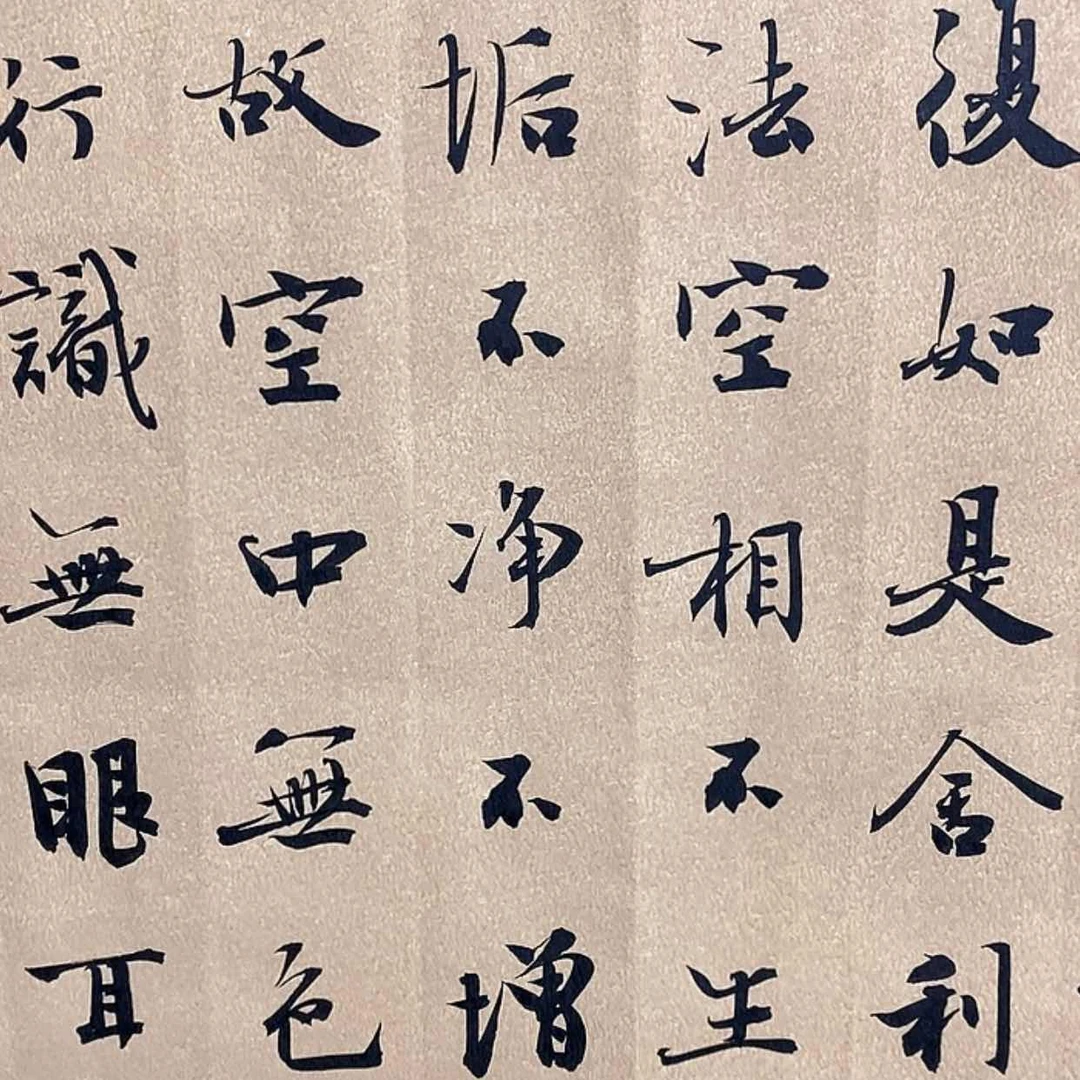 復如是舍利
法空相不生
垢不净不增
故空中無色
行識無眼耳